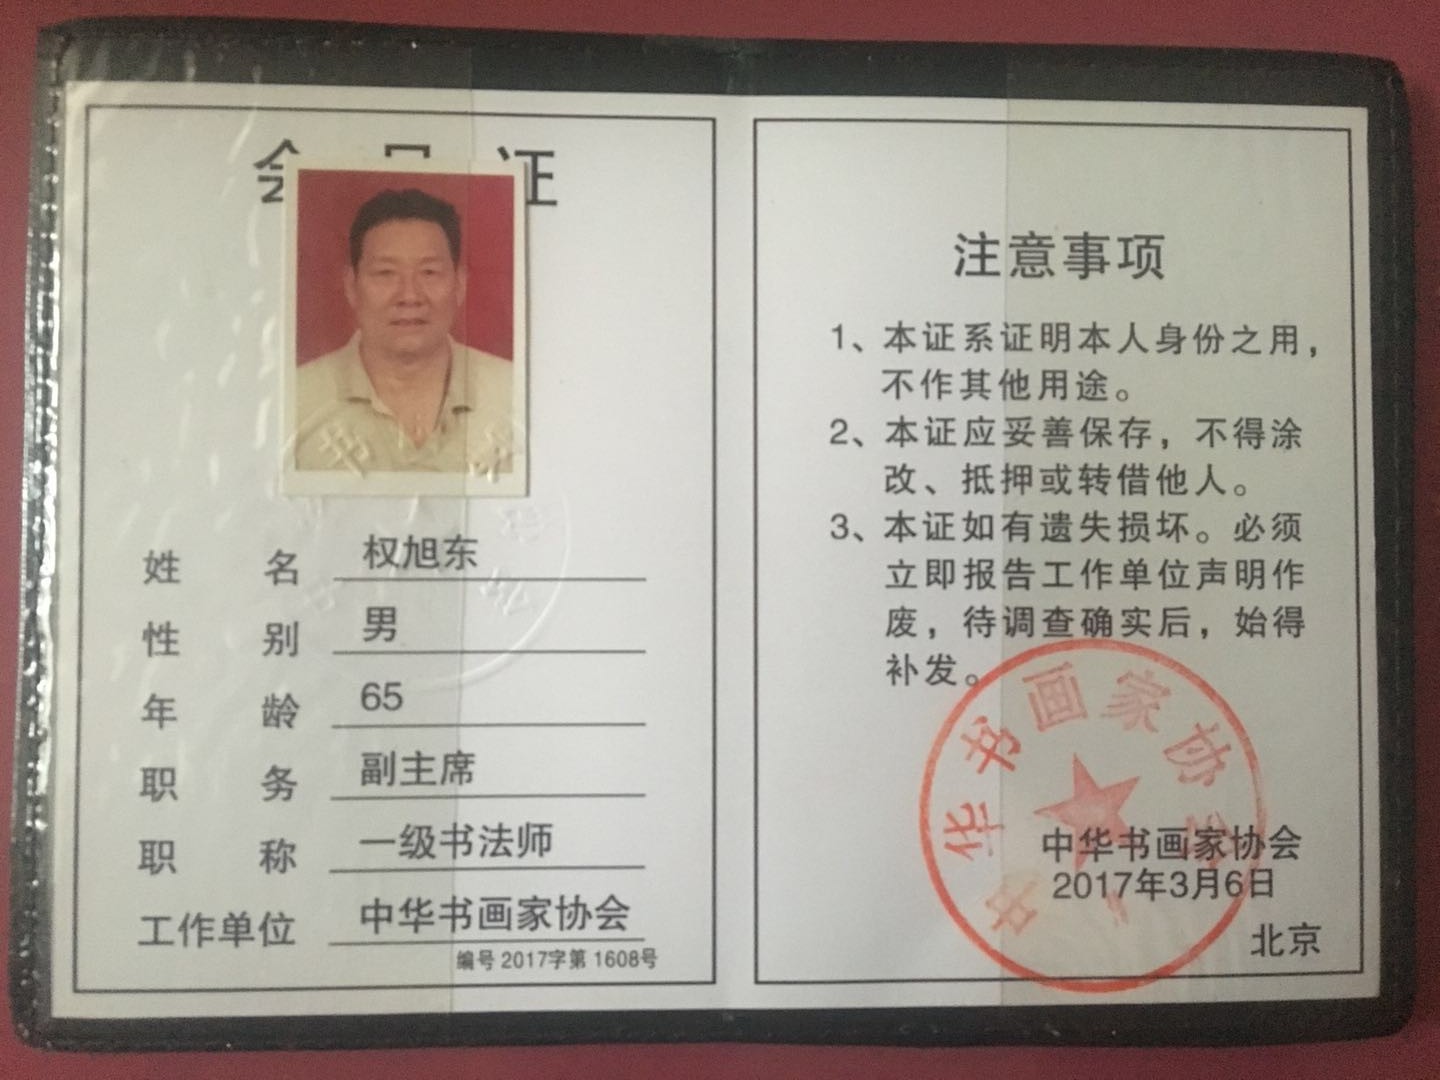 会员证
姓名 权旭东
性别 男
年龄 65
职务 副主席
职称 一级书法师
工作单位 中华书画家协会
编号 2017字第 1608号
注意事项
1、本证系证明本人身份之用，
不作其他用途。
2、本证应妥善保存，不得涂
改、抵押或转借他人。
3、本证如有遗失损坏。必须
立即报告工作单位声明作
废，待调查确实后，始得
补发。
中华书画家协会
中华书画家协会
2017年3月6日
北京